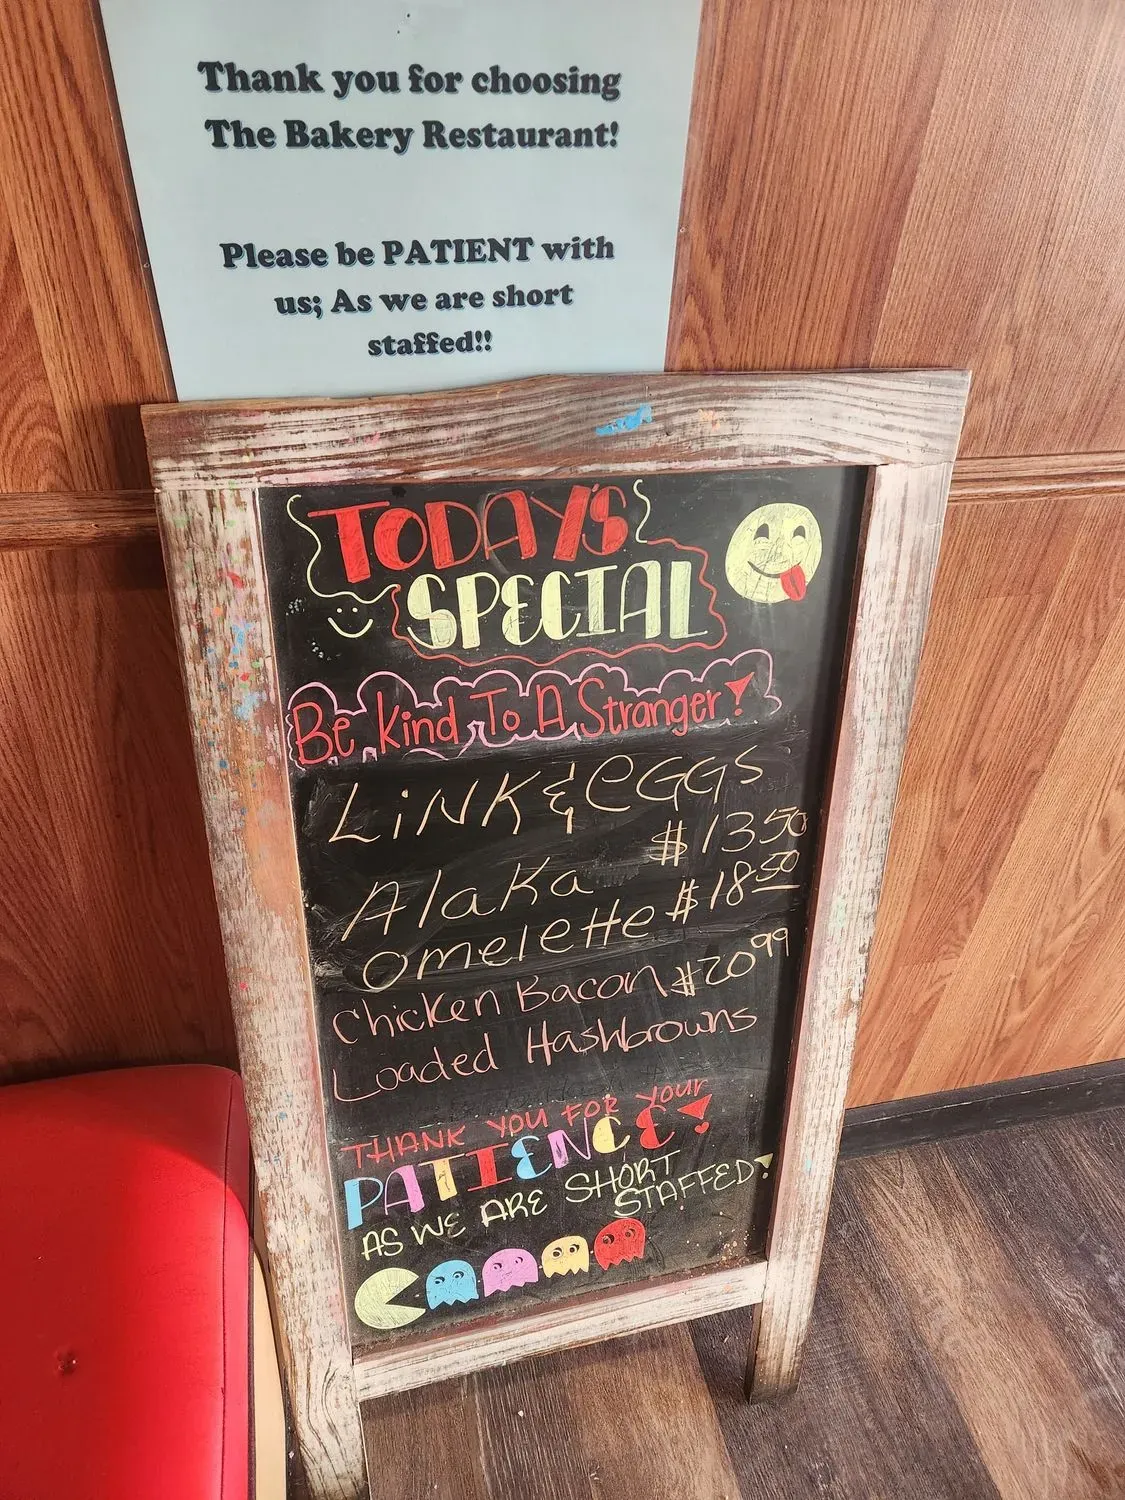 Thank you for choosing
The Bakery Restaurant!
Please be PATIENT with
us; As we are short
staffed!!
TODAY'S
SPECIAL
Be Kind To A Stranger!
LiNK & eGGS
$13.50
AlaKa
omelette $18.50
Chicken Bacon $20.99
Loaded Hashbrowns
THANK YOU FOR YOUR
PATIENCE!
AS WE ARE SHORT
STAFFED!